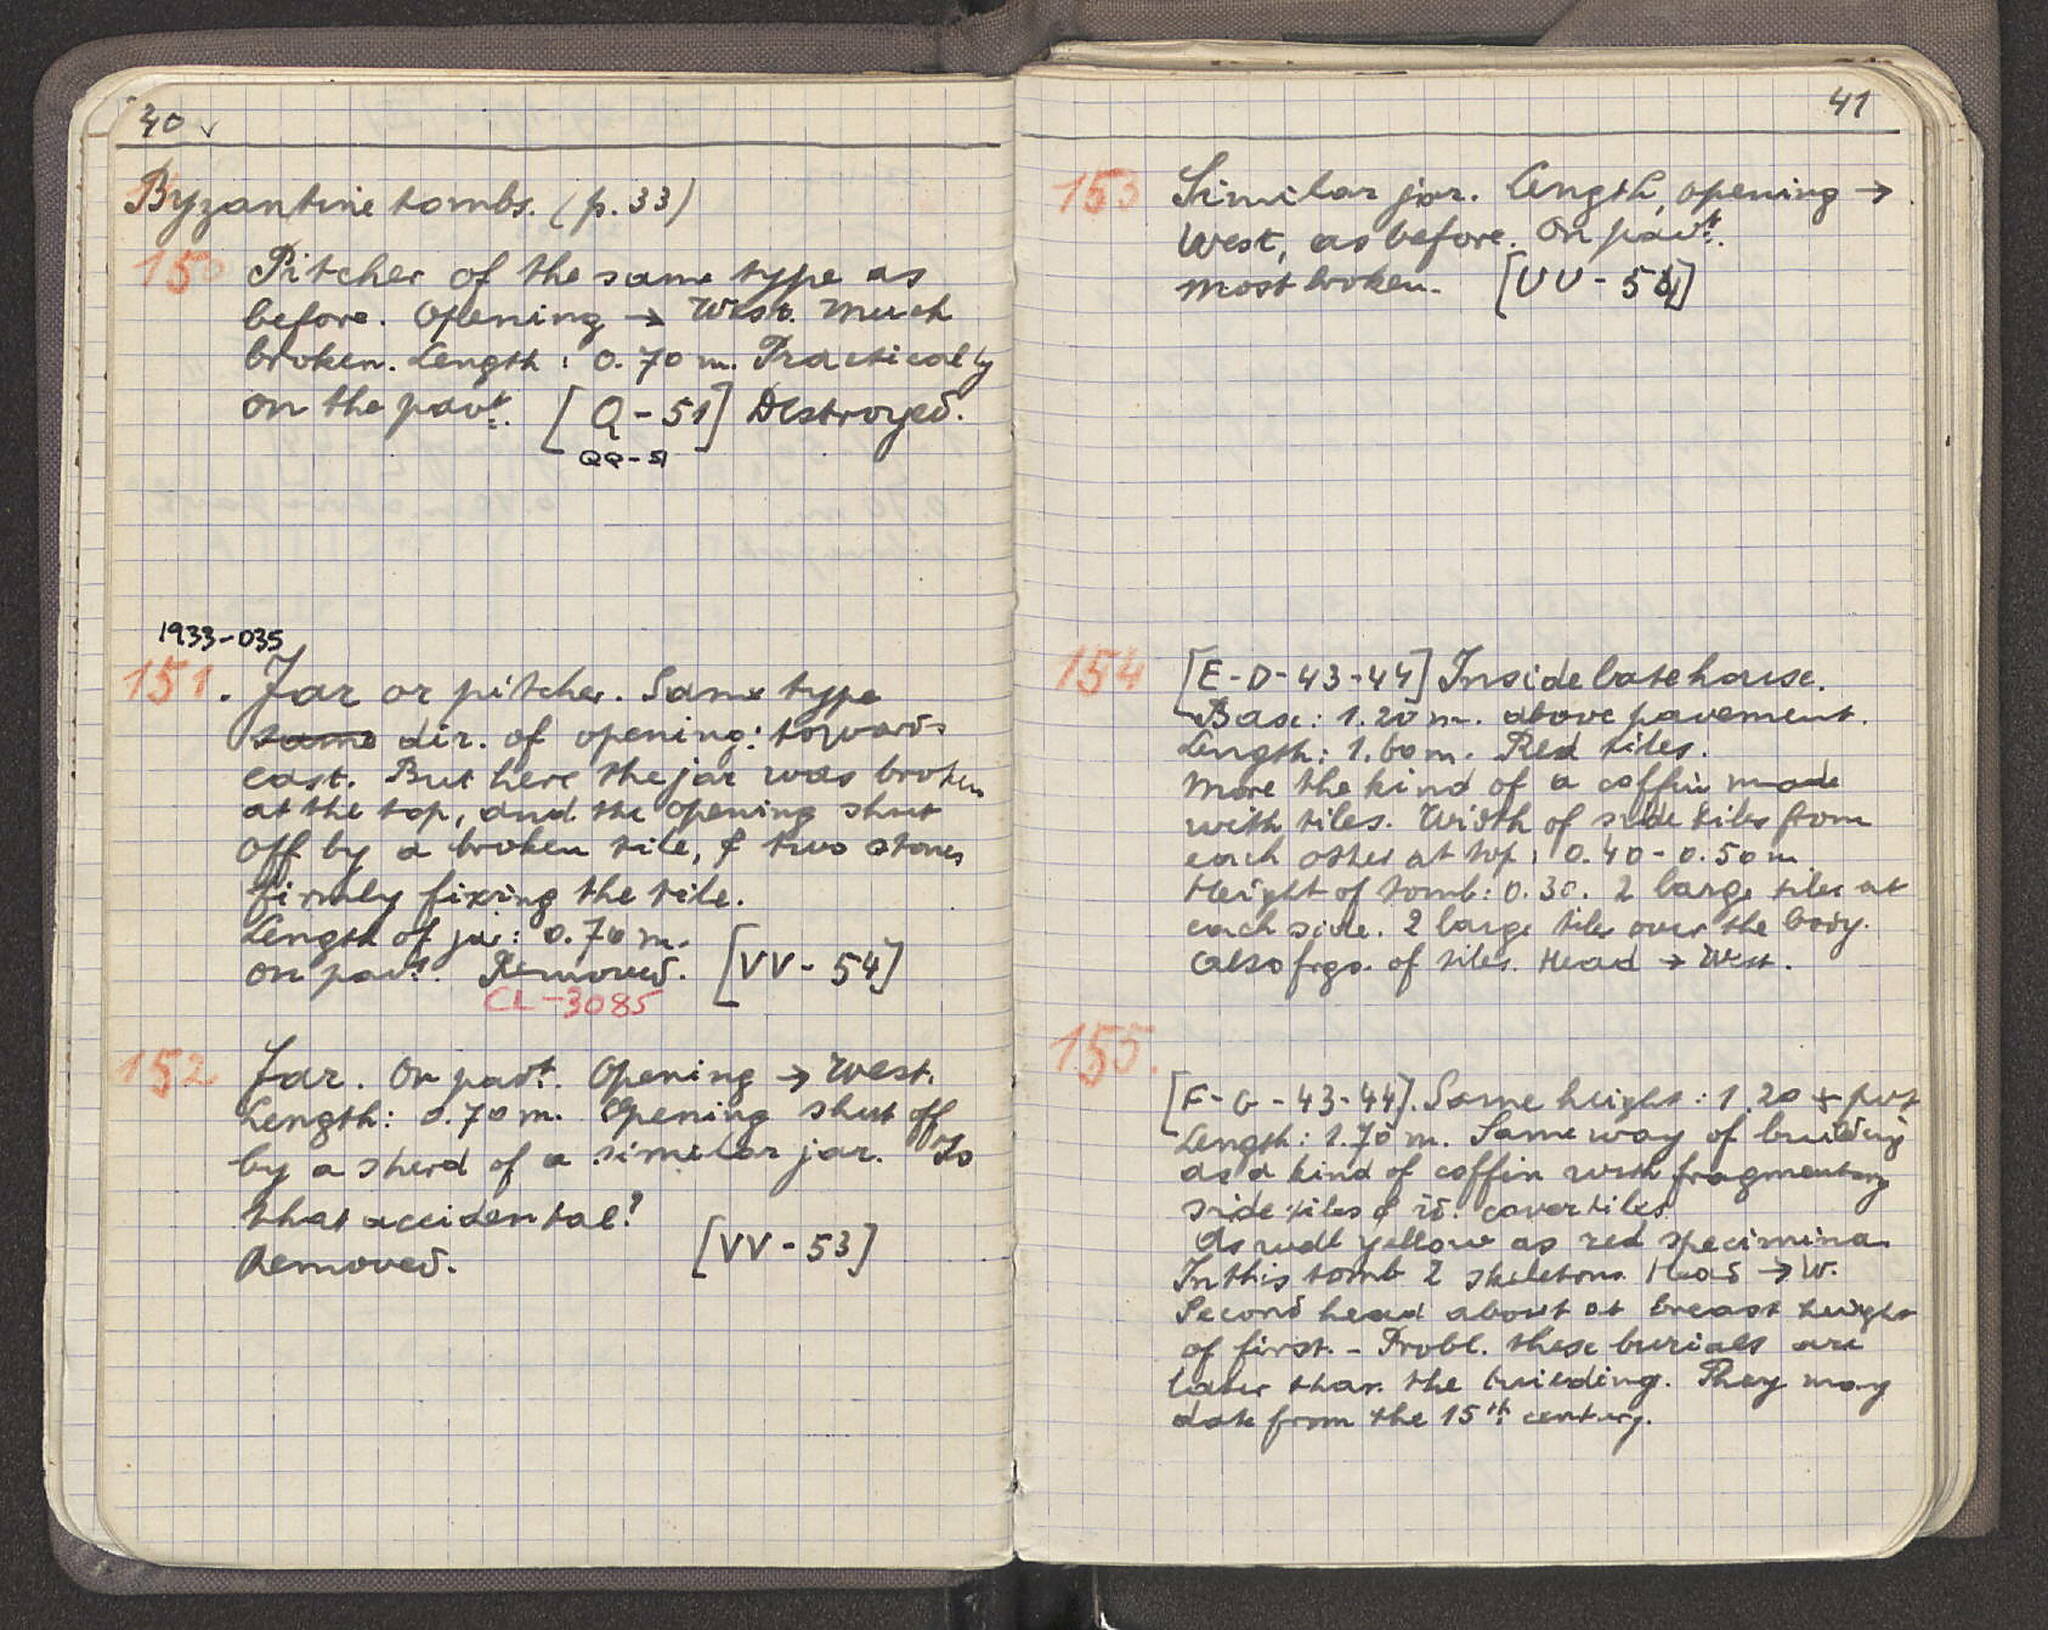 40
Byzantine tombs. (p. 33)
150 Pitcher of the same type as
before. Opening → West. Much
broken. Length: 0.70 m. Practically
on the pavt. [Q-51] Destroyed.
QQ-51
1933-035
151. Jar or pitcher. Same type
same dir. of opening: towards
east. But here the jar was broken
at the top, and the opening shut
off by a broken tile, & two stones
firmly fixing the tile.
Length of jar: 0.70 m.
On pavt. Removed. [VV-54]
CL-3085
152 Jar. On pavt. Opening → West.
Length: 0.70 m. Opening shut off
by a sherd of a similar jar. Is
that accidental?
Removed. [VV-53]
41
153 Similar jar. Length, opening →
West, as before. On pavt.
Most broken. [UU-54]
154 [E-D-43-44] Inside late house.
Base: 1.20 m. above pavement.
Length: 1.60 m. Red tiles.
More the kind of a coffin made
with tiles. Width of side tiles from
each other at top: 0.40-0.50 m.
Height of tomb: 0.30. 2 large tiles at
each side. 2 large tiles over the body.
Also frgs. of tiles. Head → West.
155.
[F-G-43-44]. Same height: 1.20 +
Length: 1.70 m. Same way of building
as a kind of coffin with fragmentary
side tiles & id. cover tiles.
As well yellow as red specimina.
In this tomb 2 skeletons. Head → W.
Second head about at breast height
of first. - Probl. these burials are
later than the building. They may
date from the 15th century.